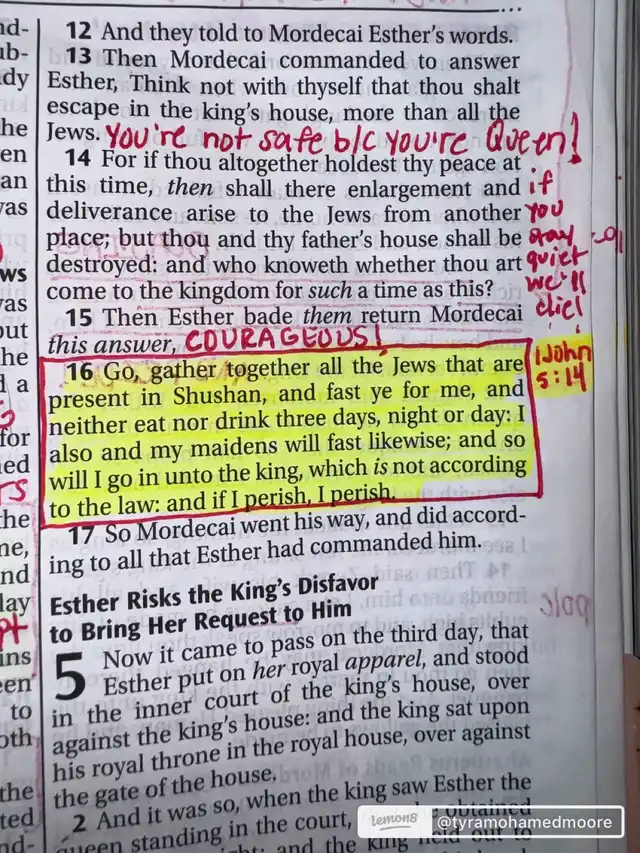 12 And they told to Mordecai Esther's words.
13 Then Mordecai commanded to answer
Esther, Think not with thyself that thou shalt
escape in the king's house, more than all the
Jews. You're not safe b/c you're Queen!
14 For if thou altogether holdest thy peace at
this time, then shall there enlargement and
deliverance arise to the Jews from another
place; but thou and thy father's house shall be
destroyed: and who knoweth whether thou art
come to the kingdom for such a time as this?
if
you
stay
quiet
we'll
die!
15 Then Esther bade them return Mordecai
this answer, COURAGEOUS!
16 Go, gather together all the Jews that are
present in Shushan, and fast ye for me, and
neither eat nor drink three days, night or day: I
also and my maidens will fast likewise; and so
will I go in unto the king, which is not according
to the law: and if I perish, I perish.
1 John
5:14
17 So Mordecai went his way, and did accord-
ing to all that Esther had commanded him.
Esther Risks the King's Disfavor
to Bring Her Request to Him
5 Now it came to pass on the third day, that
Esther put on her royal apparel, and stood
in the inner court of the king's house, over
against the king's house: and the king sat upon
his royal throne in the royal house, over against
the gate of the house.
2 And it was so, when the king saw Esther the
queen standing in the court, obtained
and the king held out to
lemon8
@tyramohamedmoore